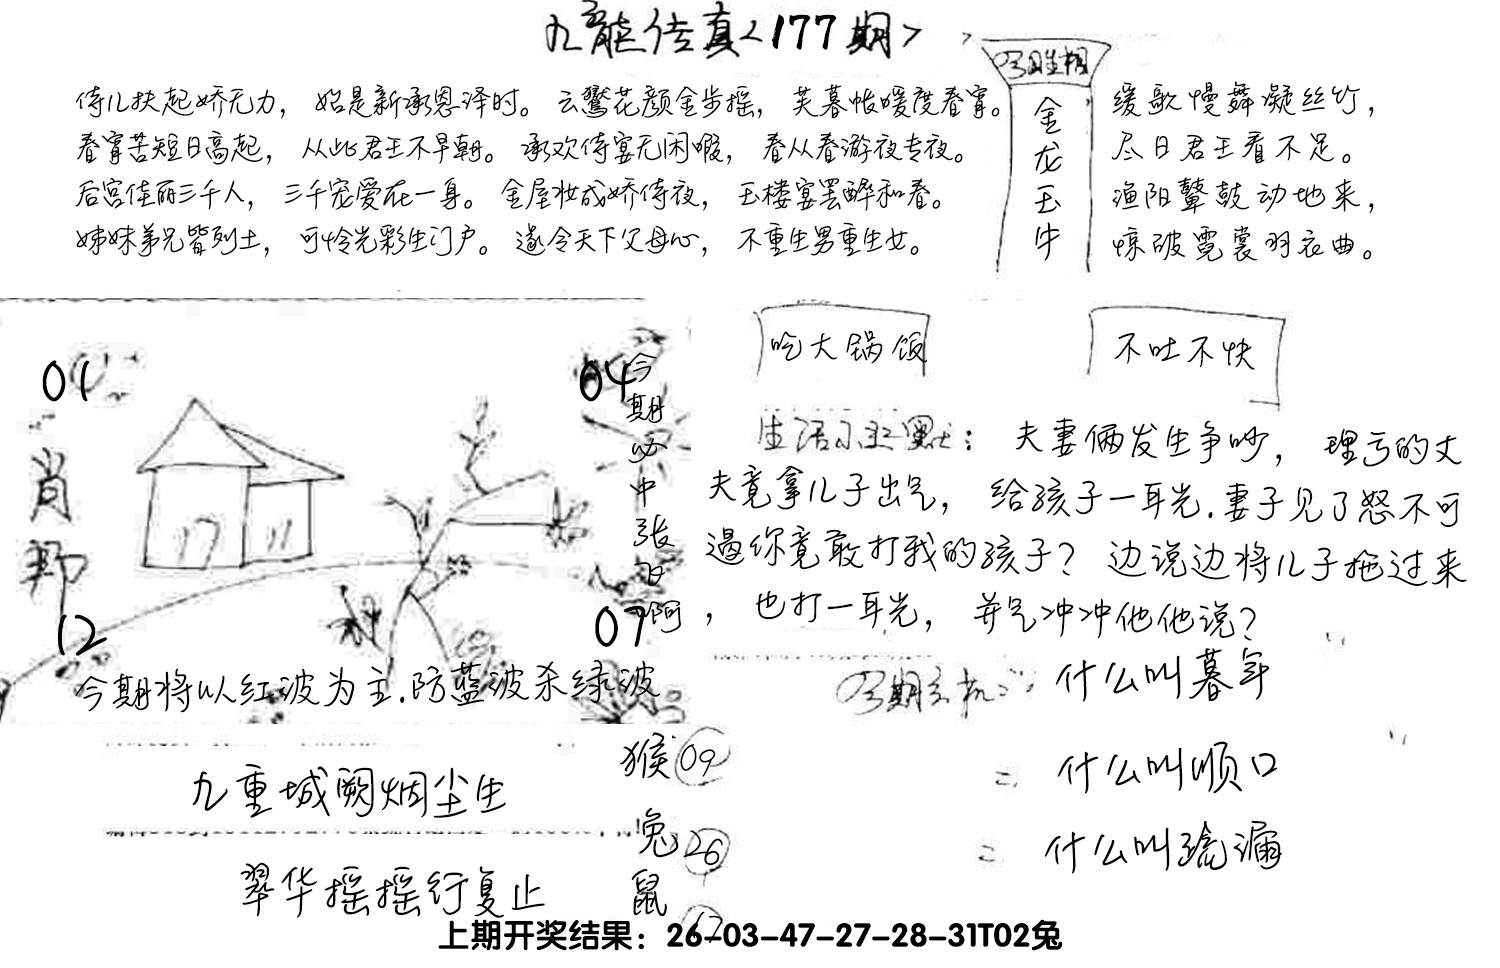 九龙传真<177期>
侍儿扶起娇无力，始是新承恩泽时。云鬓花颜金步摇，芙暮帐暖度春宵。
春宵苦短日高起，从此君王不早朝。承欢侍宴无闲暇，春从春游夜专夜。
后宫佳丽三千人，三千宠爱在一身。金屋妆成娇侍夜，玉楼宴罢醉和春。
姊妹弟兄皆列土，可怜光彩生门户。遂令天下父母心，不重生男重生女。
金龙玉牛
缓歌慢舞凝丝竹，
尽日君王看不足。
渔阳鼙鼓动地来，
惊破霓裳羽衣曲。
01
04
肖
12
07
今期必中张飞啊
今期将以红波为主.防蓝波杀绿波
吃大锅饭
不吐不快
生活小幽默：夫妻俩发生争吵，理亏的丈
夫竟拿儿子出气，给孩子一耳光.妻子见了怒不可
遏你竟敢打我的孩子？边说边将儿子拖过来
，也打一耳光，并气冲冲他他说？
今期玄机：什么叫暮年
二 什么叫顺口
二 什么叫
九重城阙烟尘生
翠华摇摇行复止
猴09
兔26
鼠
上期开奖结果：26-03-47-27-28-31T02兔